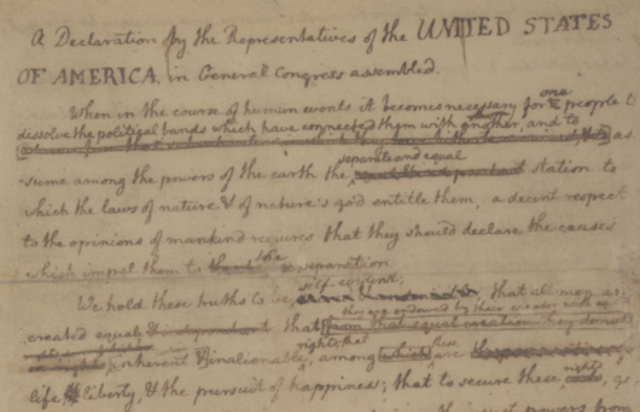 A Declaration by the Representatives of the UNITED STATES
OF AMERICA, in General Congress assembled.
When in the course of human events it becomes necessary for one people to
dissolve the political bands which have connected them with another, and to
as
separate and equal
-sume among the powers of the earth the station to
which the laws of nature & of nature's god entitle them, a decent respect
to the opinions of mankind requires that they should declare the causes
which impel them to the separation.
self-evident;
We hold these truths to be that all men are
they are endowed by their creator with
created equal & independent that from that equal creation they
rights; that these
inherent & inalienable among which are
life liberty, & the pursuit of happiness; that to secure these rights
powers from